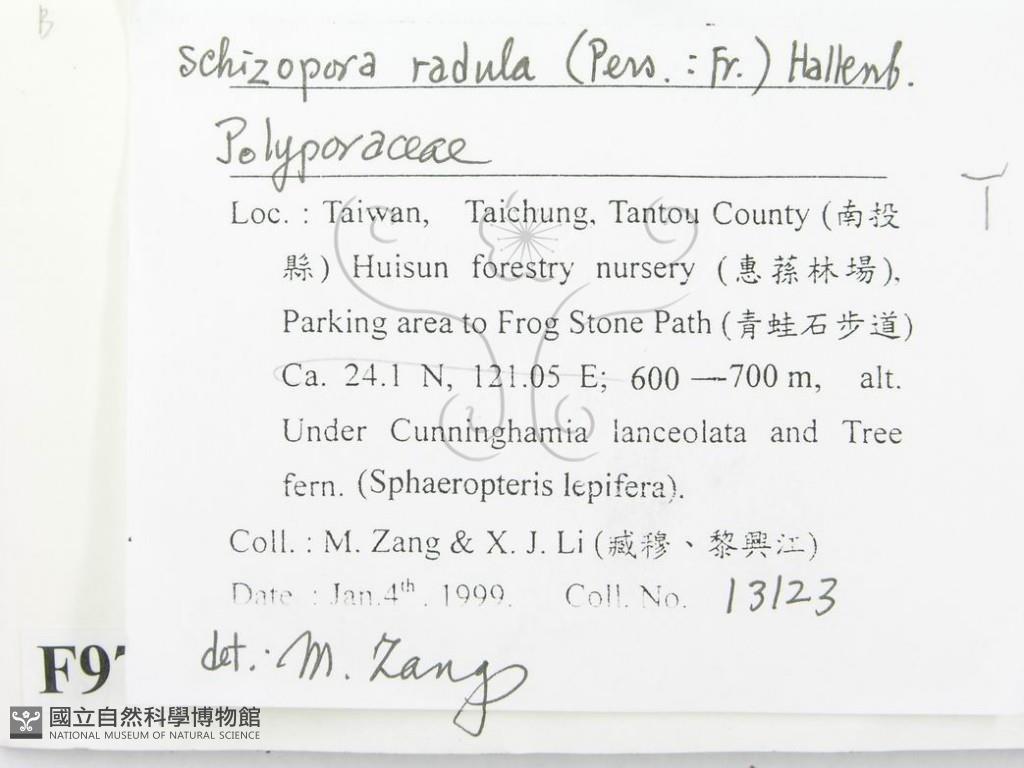 B
Schizopora radula (Pers. : Fr.) Hallenb.
Polyporaceae
T
Loc. : Taiwan, Taichung, Tantou County (南投
縣) Huisun forestry nursery (惠蓀林場),
Parking area to Frog Stone Path (青蛙石步道)
Ca. 24.1 N, 121.05 E; 600 —700 m, alt.
Under Cunninghamia lanceolata and Tree
fern. (Sphaeropteris lepifera).
Coll. : M. Zang & X. J. Li (臧穆、黎興江)
Date : Jan.4th. 1999. Coll. No. 13123
det.: M. Zang
F97
國立自然科學博物館
NATIONAL MUSEUM OF NATURAL SCIENCE